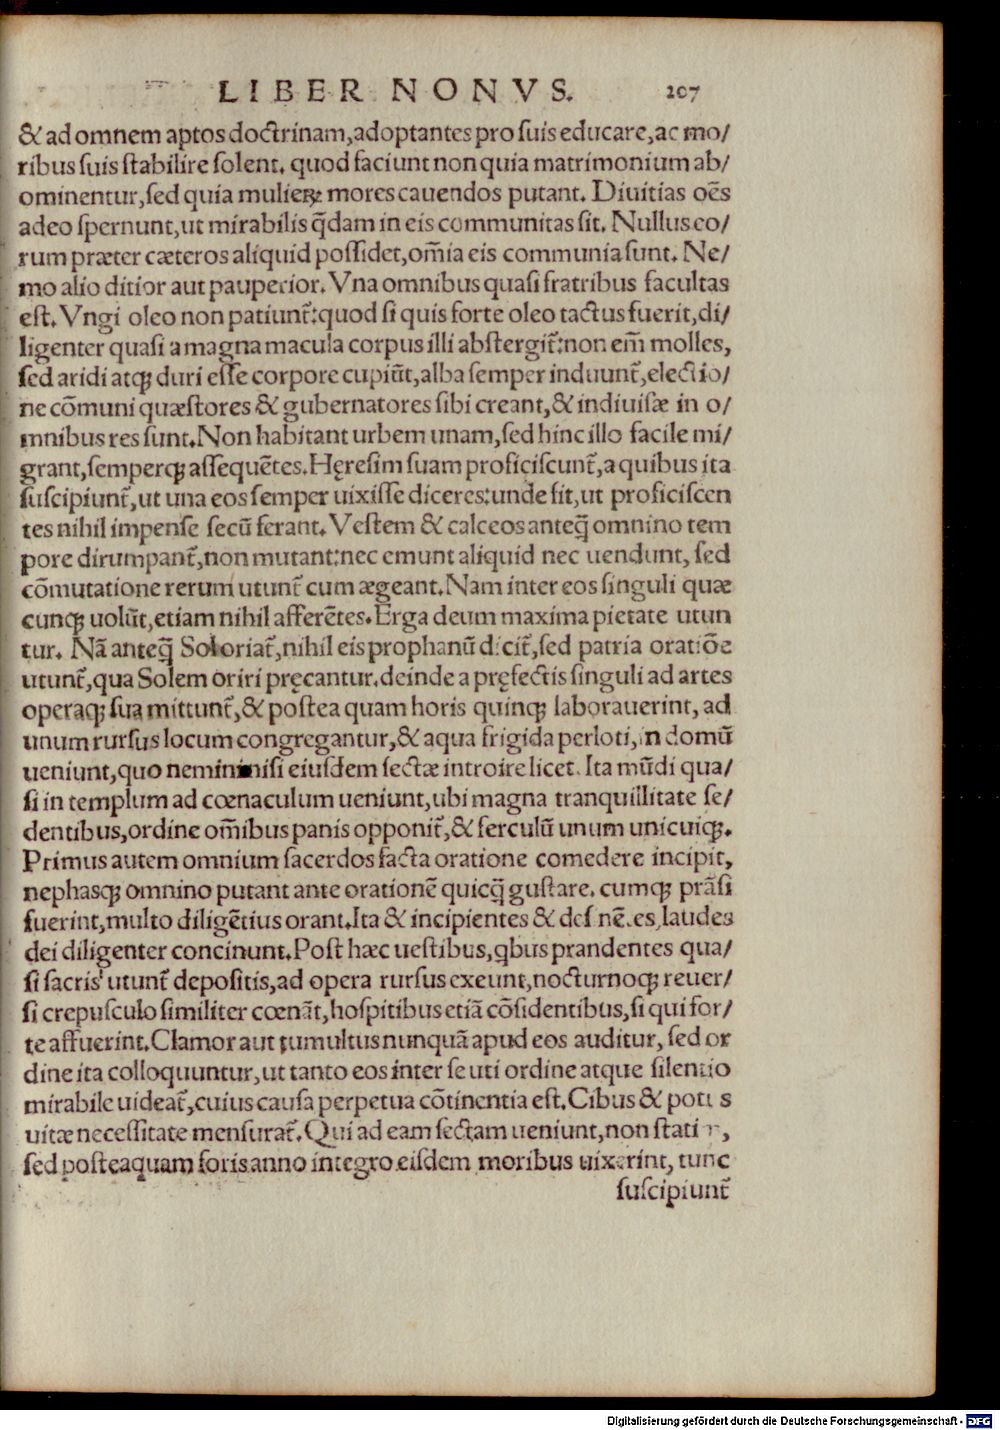 LIBER NONVS. 207
& ad omnem aptos doctrinam,adoptantes pro suis educare,ac mo/
ribus suis stabilire solent. quod faciunt non quia matrimonium ab/
ominentur,sed quia mulieꝝ mores cauendos putant. Diuitias oēs
adeo spernunt,ut mirabilis q̄dam in eis communitas sit. Nullus eo/
rum præter cæteros aliquid possidet,om̄ia eis communia sunt. Ne/
mo alio ditior aut pauperior. Vna omnibus quasi fratribus facultas
est. Vngi oleo non patiunt̃:quod si quis forte oleo tactus fuerit,di/
ligenter quasi a magna macula corpus illi abstergit̃:non em̄ molles,
sed aridi atqꝫ duri esse corpore cupiūt,alba semper induunt̃,electio/
ne cōmuni quæstores & gubernatores sibi creant,& indiuisæ in o/
mnibus res sunt.Non habitant urbem unam,sed hinc illo facile mi/
grant,semperqꝫ assequētes.Hęresim suam proficiscunt̃,a quibus ita
suscipiunt̃,ut una eos semper uixisse diceres:unde fit,ut proficiscen
tes nihil impense secū ferant. Vestem & calceos anteq̄ omnino tem
pore dirumpant̃,non mutant:nec emunt aliquid nec uendunt, sed
cōmutatione rerum utunt̃ cum ægeant.Nam inter eos singuli quæ
cunqꝫ uolūt,etiam nihil afferētes.Erga deum maxima pietate utun
tur. Nā anteq̄ Sol oriat̃,nihil eis prophanū dicit̃,sed patria oratiōe
utunt̃,qua Solem oriri pręcantur.deinde a pręfectis singuli ad artes
operaqꝫ sua mittunt̃,& postea quam horis quinqꝫ laborauerint, ad
unum rursus locum congregantur,& aqua frigida perloti,in domū
ueniunt,quo nemini nisi eiusdem sectæ introire licet. Ita mūdi qua/
si in templum ad cœnaculum ueniunt,ubi magna tranquillitate se/
dentibus,ordine om̄ibus panis opponit̃,& ferculū unum unicuiqꝫ.
Primus autem omnium sacerdos facta oratione comedere incipit,
nephasqꝫ omnino putant ante orationē quicq̄ gustare. cumqꝫ prāsi
fuerint,multo diligētius orant.Ita & incipientes & desinētes,laudes
dei diligenter concinunt.Post hæc uestibus,ꝗbus prandentes qua/
si sacris utunt̃ depositis,ad opera rursus exeunt,nocturnoqꝫ reuer/
si crepusculo similiter cœnāt,hospitibus etiā cōsidentibus,si qui for/
te affuerint.Clamor aut tumultus nunquā apud eos auditur, sed or
dine ita colloquuntur,ut tanto eos inter se uti ordine atque silentio
mirabile uideat̃,cuius causa perpetua cōtinentia est.Cibus & potus
uitæ necessitate mensurat̃.Qui ad eam sectam ueniunt,non statim,
sed posteaquam foris anno integro eisdem moribus uixerint, tunc
suscipiunt̃
Digitalisierung gefördert durch die Deutsche Forschungsgemeinschaft - DFG